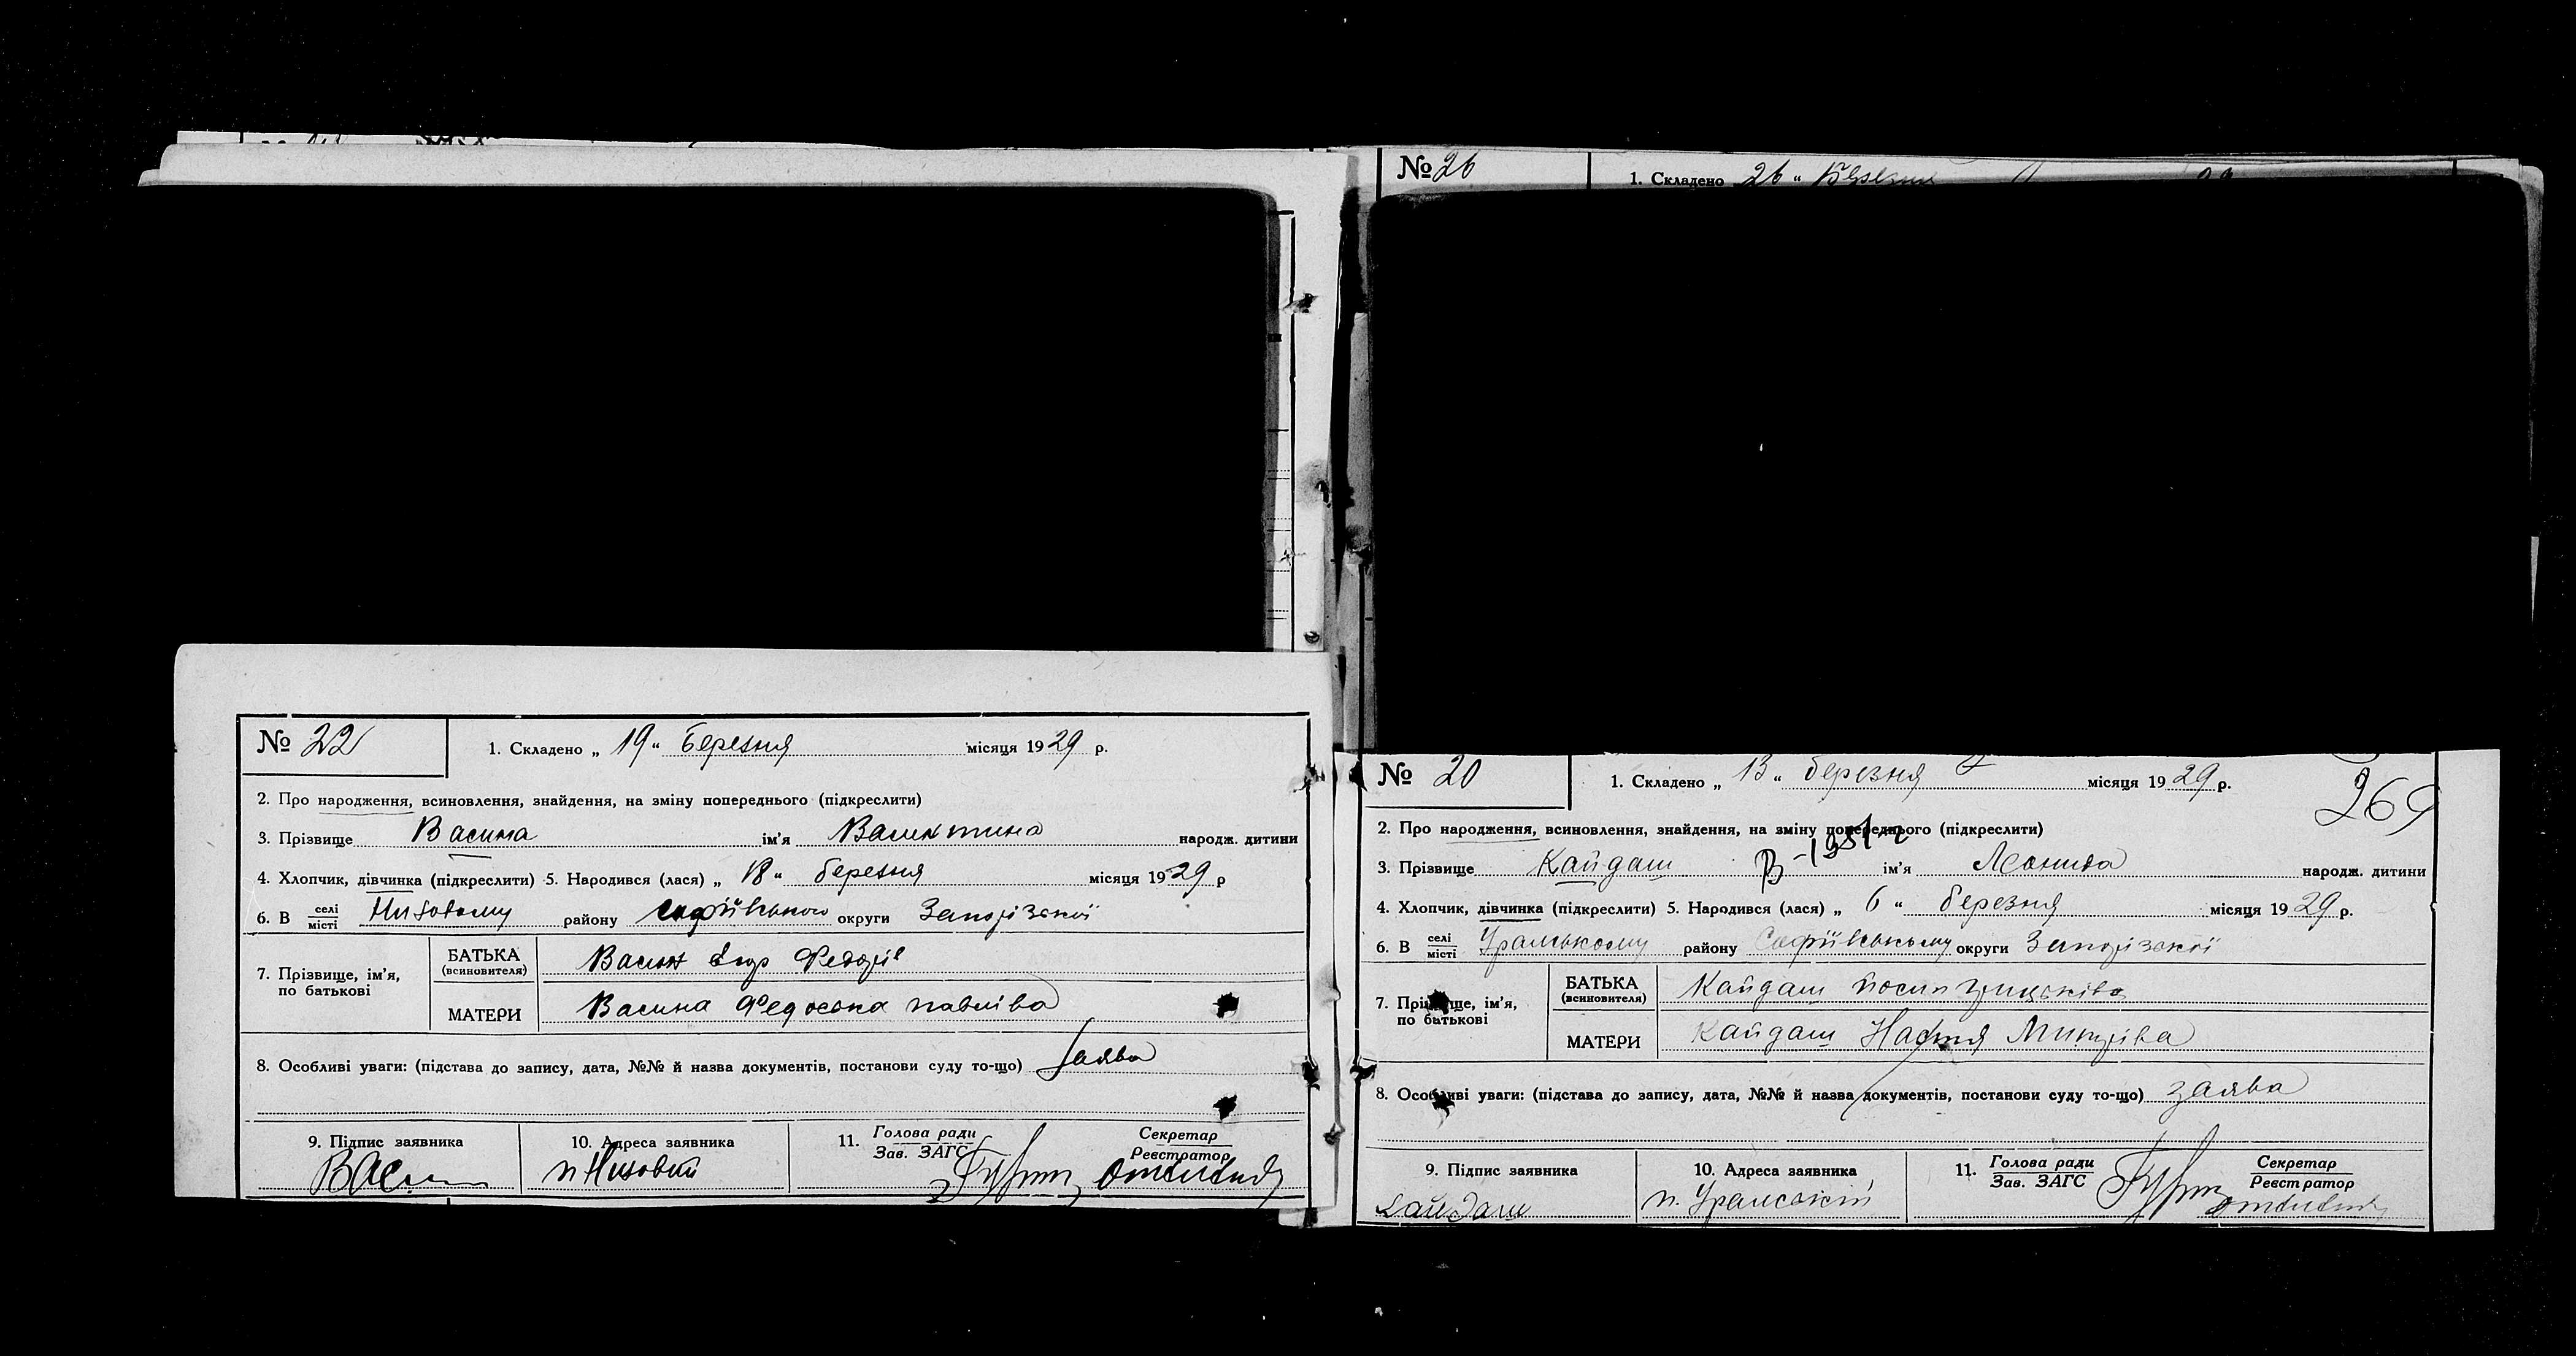 № 22 1. Складено „ 19 “ березня місяця 1929 р.
2. Про народження, всиновлення, знайдення, на зміну попереднього (підкреслити)
3. Прізвище Васина ім'я Валинтина народж. дитини
4. Хлопчик, дівчинка (підкреслити) 5. Народився (лася) „ 18 “ березня місяця 1929 р
6. В селі місті Низовому району софіївського округи Запорізької
7. Прізвище, ім'я, по батькові
БАТЬКА (всиновителя) Васин Егор Федорів
МАТЕРИ Васина Федоська павлівa
8. Особливі уваги: (підстава до запису, дата, №№ й назва документів, постанови суду то-що) Заява
9. Підпис заявника 10. Адреса заявника 11. Голова ради Зав. ЗАГС Секретар Реєстратор
п Низовий
№ 26 1. Складено „ 26 “ Березня
№ 20 1. Складено „ 13 “ березня місяця 1929 р.
269
2. Про народження, всиновлення, знайдення, на зміну попереднього (підкреслити)
3. Прізвище Кайдаш ім'я Леонида народж. дитини
4. Хлопчик, дівчинка (підкреслити) 5. Народився (лася) „ 6 “ березня місяця 1929 р.
6. В селі місті Уральському району Софіївському округи Запорізької
7. Прізвище, ім'я, по батькові
БАТЬКА (всиновителя) Кайдаш Йосип Грицьків
МАТЕРИ Кайдаш Настя Митрівa
8. Особливі уваги: (підстава до запису, дата, №№ й назва документів, постанови суду то-що) заява
9. Підпис заявника 10. Адреса заявника 11. Голова ради Зав. ЗАГС Секретар Реєстратор
Кайдаш п. Уральский